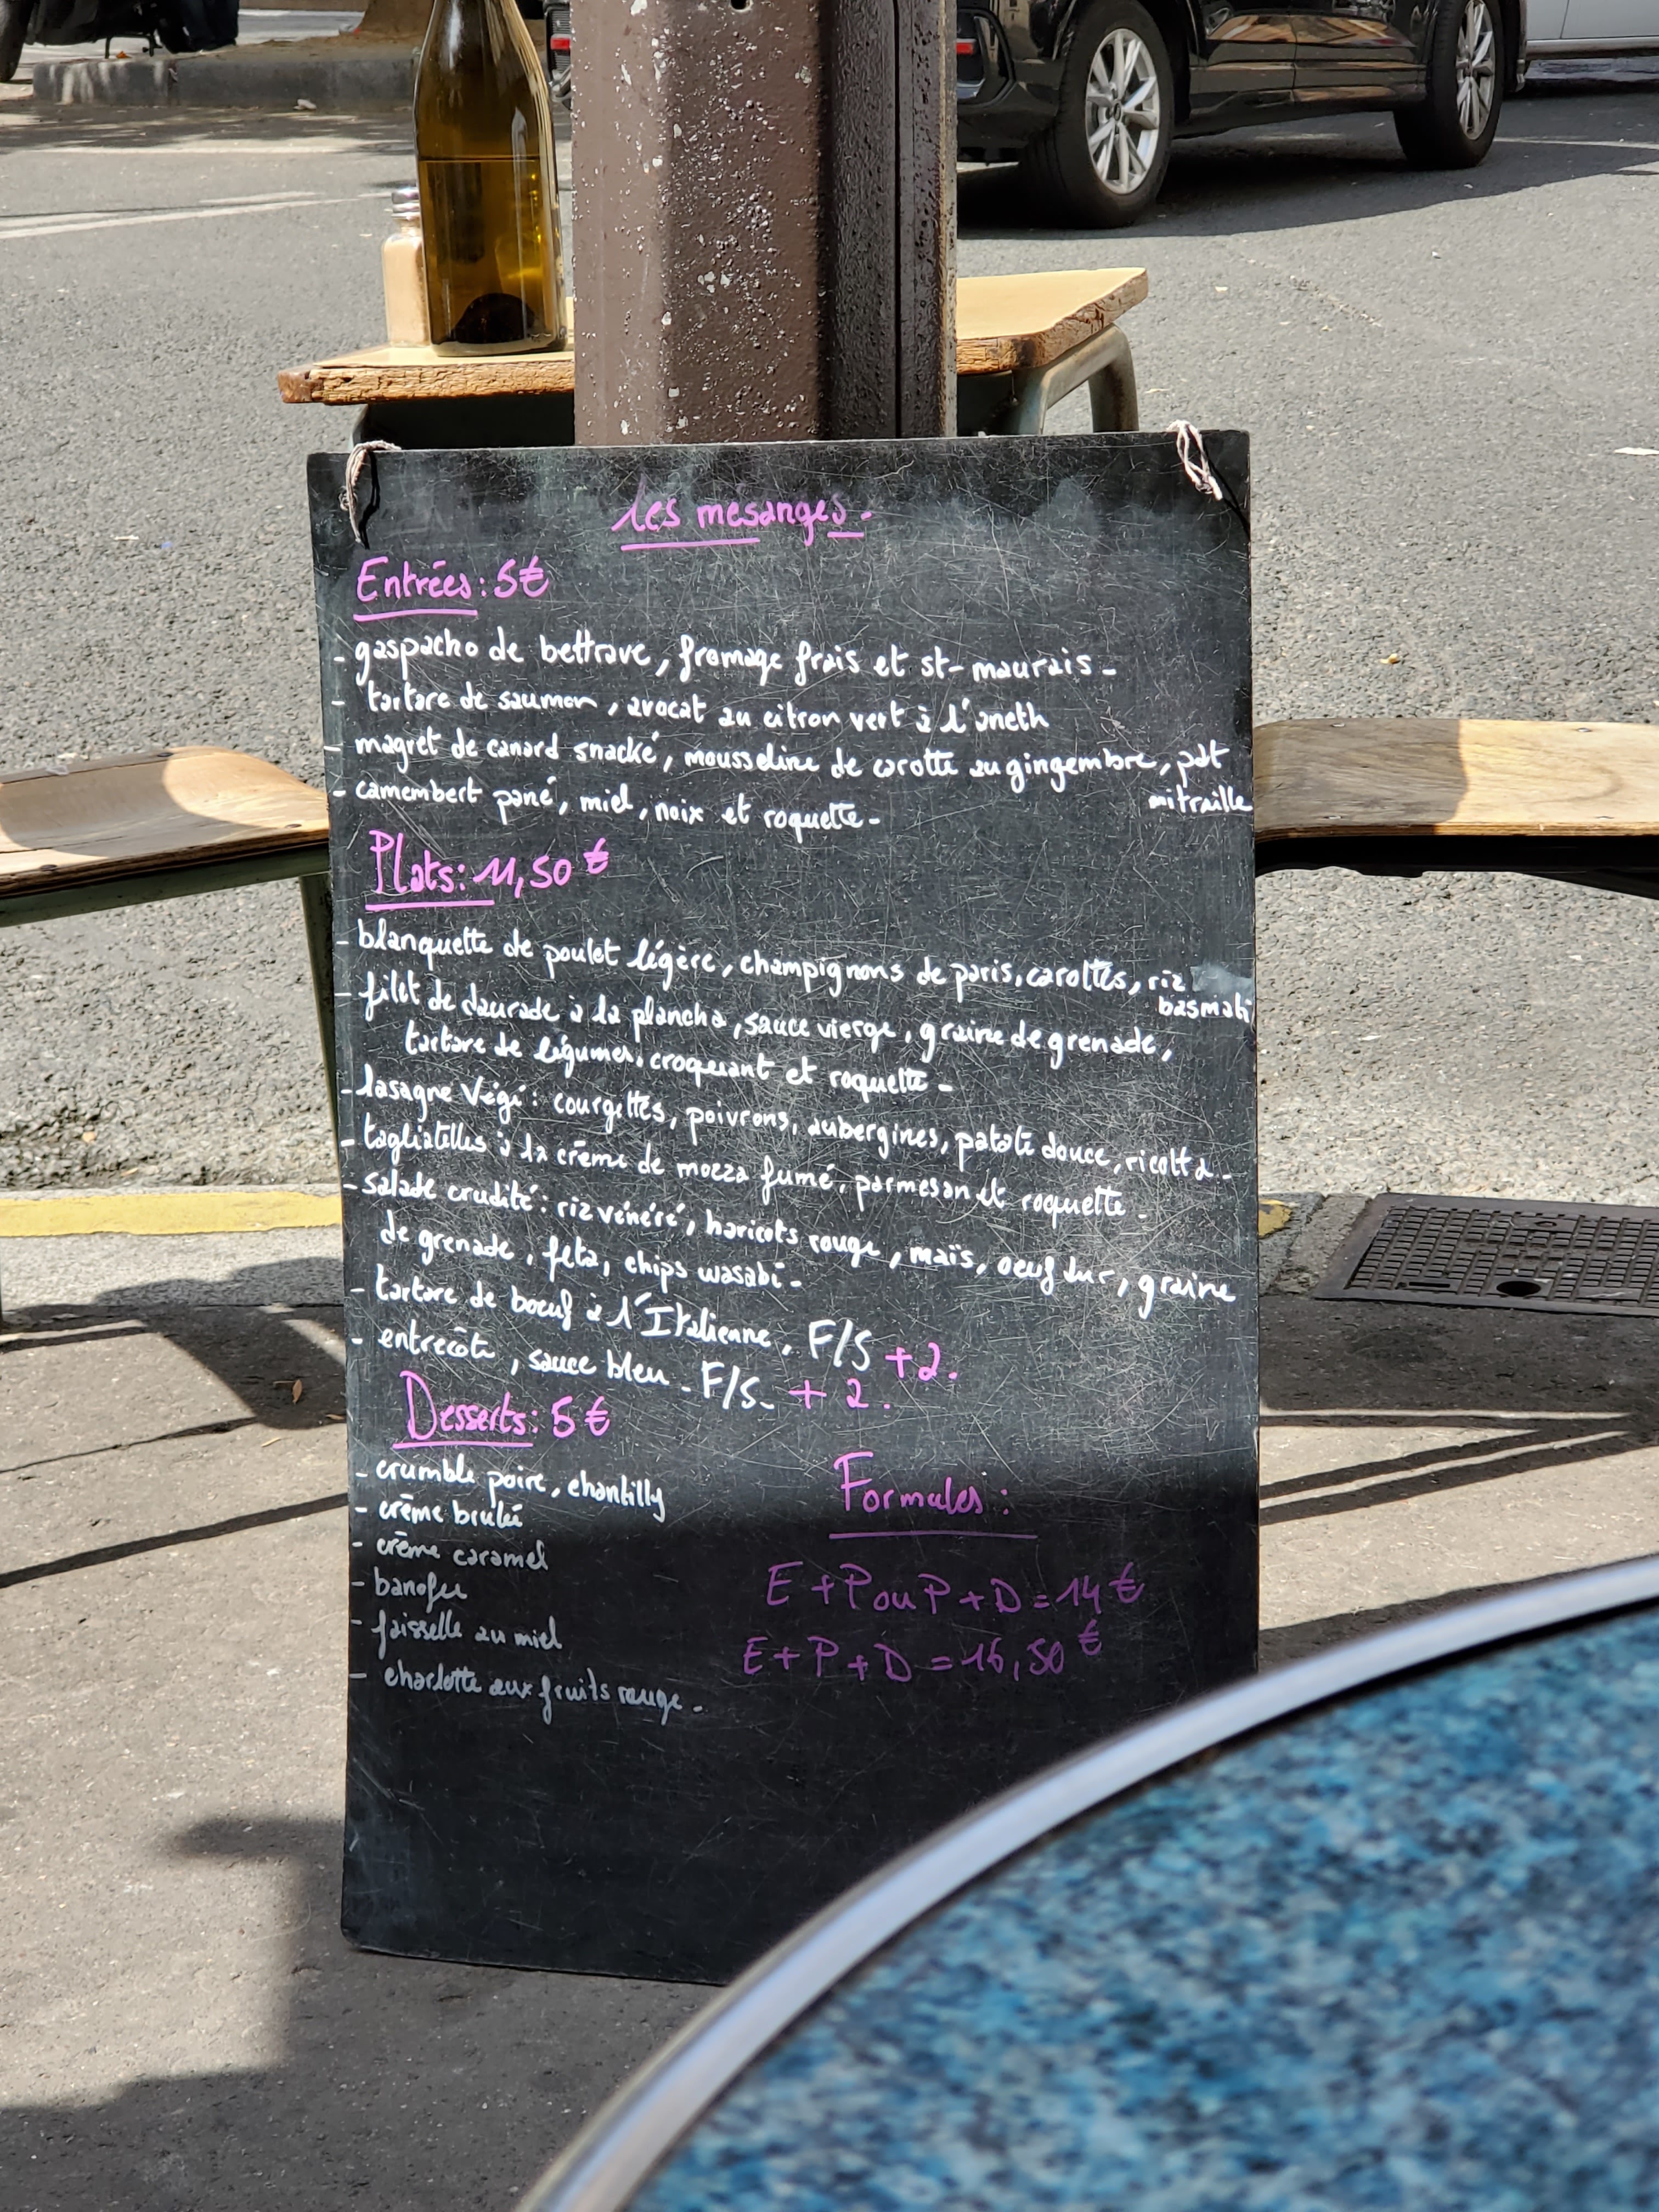 les mesanges.
Entrées : 5€
- gaspacho de bettrave, fromage frais et st-maurais -
- tartare de saumon, avocat au citron vert à l'aneth
- magret de canard snacké, mousseline de carotte au gingembre, pdt
mitraille
- camembert pané, miel, noix et roquette -
Plats : 11,50 €
- blanquette de poulet légère, champignons de paris, carottes, riz
basmati
- filet de daurade à la plancha, sauce vierge, graine de grenade,
tartare de légumes, croquant et roquette -
- lasagne Végé : courgettes, poivrons, aubergines, patate douce, ricotta -
- tagliatelles à la crème de mozza fumé, parmesan et roquette -
- salade crudité : riz vénéré, haricots rouge, maïs, oeuf dur, graine
de grenade, feta, chips wasabi -
- tartare de boeuf à l'Italienne, F/S +2.
- entrecôte, sauce bleu - F/S - +2.
Desserts : 5 €
- crumble poire, chantilly
- crème brulée
- crème caramel
- banofee
- faisselle au miel
- charlotte aux fruits rouge -
Formules :
E + P ou P + D = 14 €
E + P + D = 16,50 €